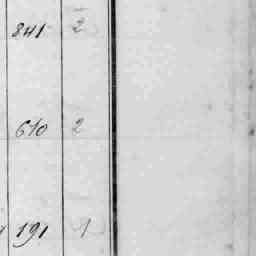 841 2
610 2
191 1